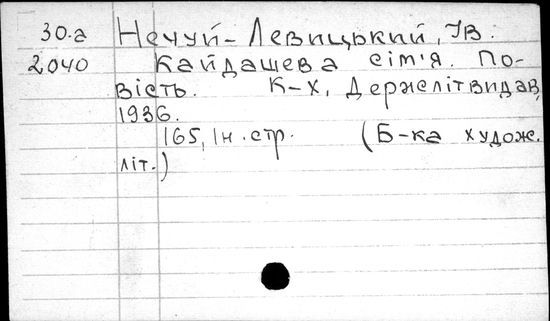 30.а Нечуй-Левицький, Ів.
2040 Кайдашева сім'я. По-
вість. К-Х, Держлітвидав,
1936.
165, Ін. стр. (Б-ка худож.
літ.)